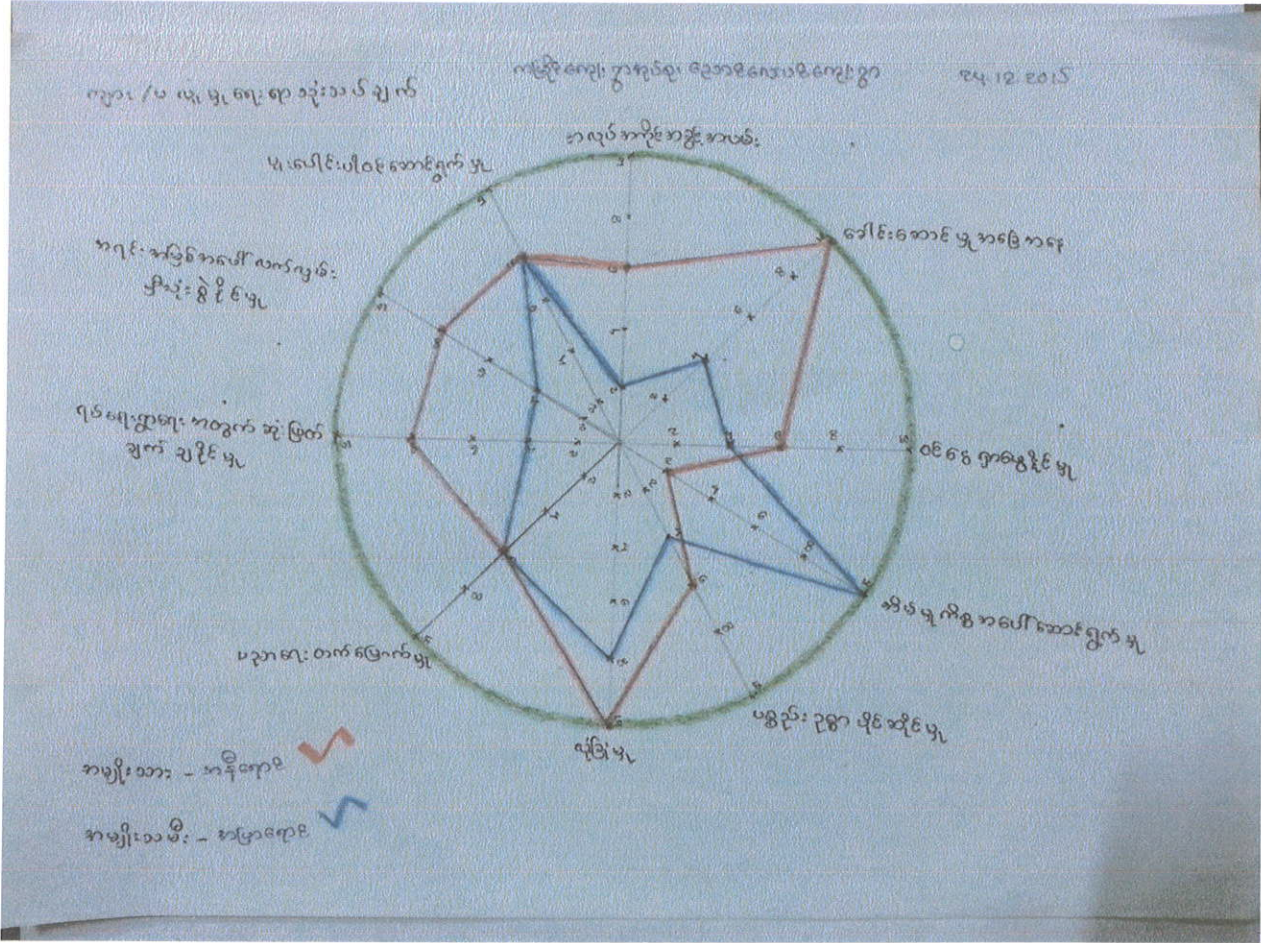 ကျား / မ လူမှုရေးရာ သုံးသပ်ချက်
24.12.2015
အလုပ်အကိုင်အခွင့်အလမ်း
ခေါင်းဆောင်မှုအခြေအနေ
ဝင်ငွေရှာဖွေနိုင်မှု
အိမ်မှုကိစ္စအပေါ်ဆောင်ရွက်မှု
ပစ္စည်းဥစ္စာပိုင်ဆိုင်မှု
လုံခြုံမှု
ပညာရေးတက်မြောက်မှု
ရပ်ရေးရွာရေးအတွက် ဆုံးဖြတ်
ချက် ချနိုင်မှု
အရင်းအမြစ်အပေါ် လက်လှမ်း
မှီသုံးစွဲနိုင်မှု
ပူးပေါင်းပါဝင်ဆောင်ရွက်မှု
အမျိုးသား - အနီရောင်
အမျိုးသမီး - အပြာရောင်